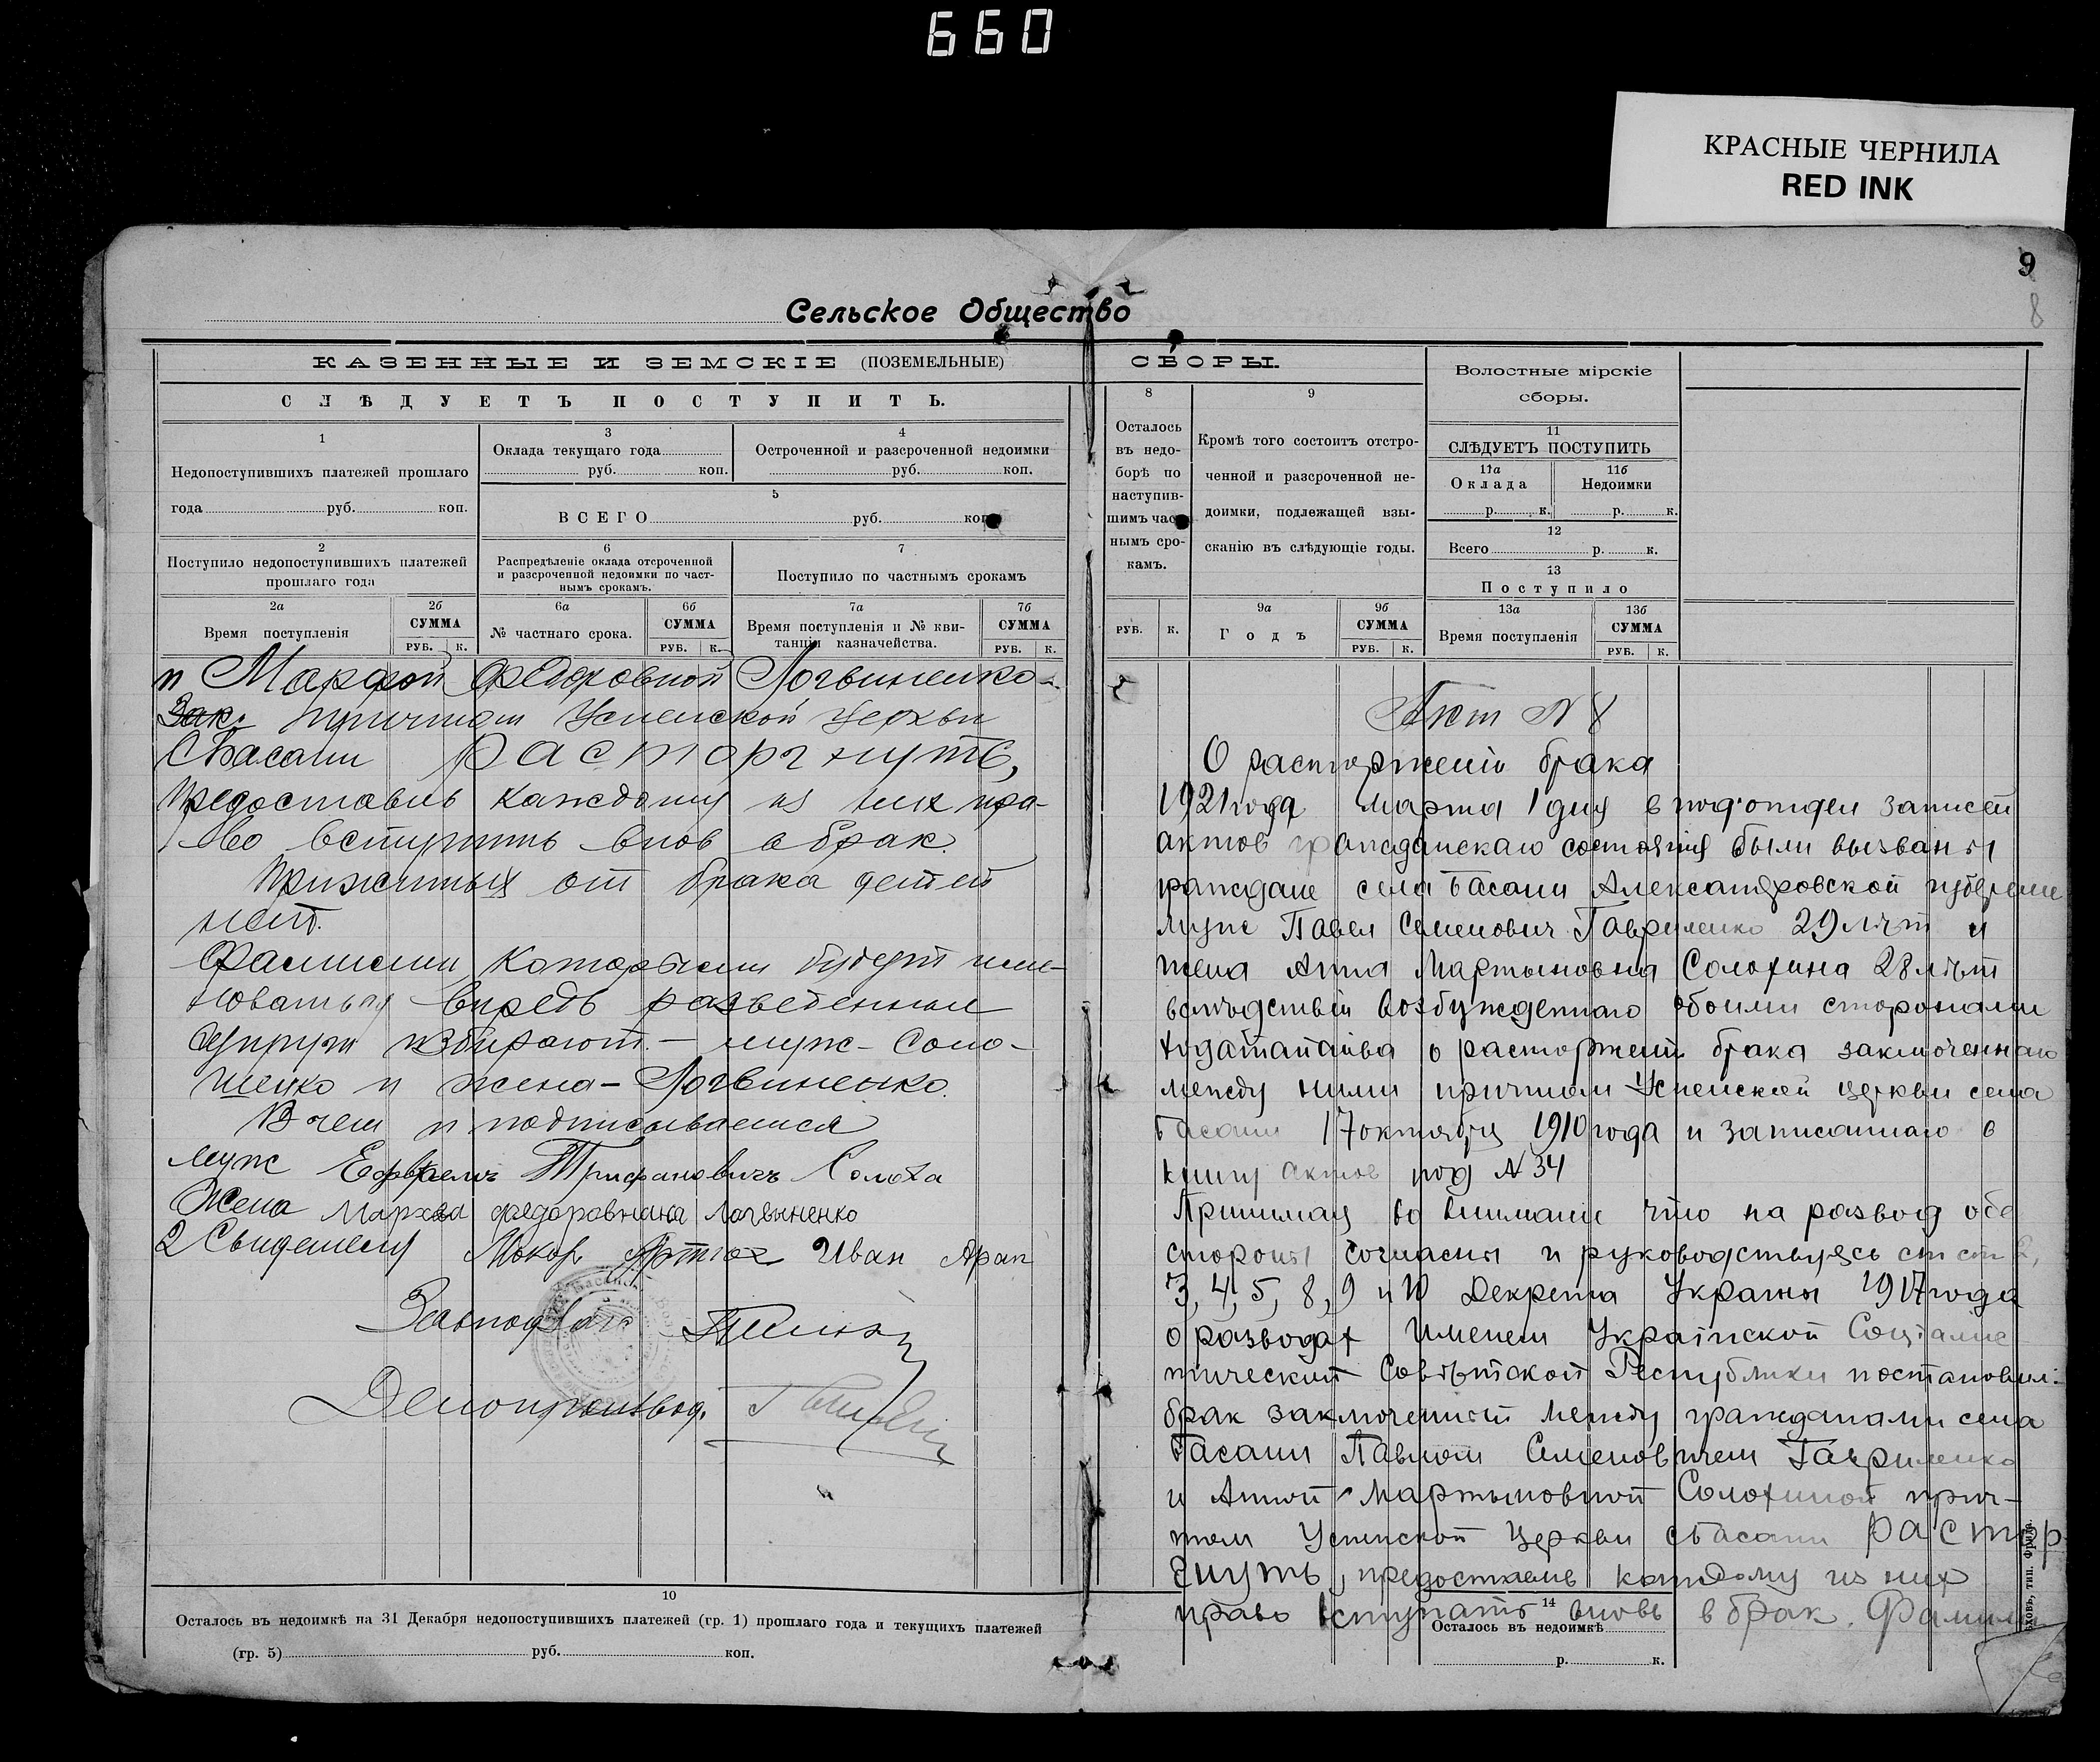 660
КРАСНЫЕ ЧЕРНИЛА
RED INK
9
8
Сельское Общество
КАЗЕННЫЕ И ЗЕМСКІЕ (ПОЗЕМЕЛЬНЫЕ) СБОРЫ.
СЛѢДУЕТЪ ПОСТУПИТЬ.
1
Недопоступившихъ платежей прошлаго
года руб. коп.
2
Поступило недопоступившихъ платежей
прошлаго года
2а
Время поступленія
2б
СУММА
РУБ. К.
3
Оклада текущаго года
руб. коп.
4
Остроченной и разсроченной недоимки
руб. коп.
5
ВСЕГО руб. коп
6
Распредѣленіе оклада отсроченной
и разсроченной недоимки по част-
нымъ срокамъ.
6а
№ частнаго срока.
6б
СУММА
РУБ. К.
7
Поступило по частнымъ срокамъ
7а
Время поступленія и № кви-
танціи казначейства.
7б
СУММА
РУБ. К.
и Марфой Федоровной Логвиненко
Зак. причтом Успенской церкви
с Басани расторгнуть,
предоставив каждому из них пра-
во вступить внов в брак.
Прижитых от брака детей
нет.
Фамилии которыми будут име-
новаться впредь разведенные
супруги избирают - муж - Соло-
шенко и жена - Логвиненко.
В чем и подписываемся
муж Трифановичъ Солоха
Жена Марха федоровнана Логвыненко
2 Свидетеля Иван Арап
Завподъот
Делопроизвод.
10
Осталось въ недоимкѣ на 31 Декабря недопоступившихъ платежей (гр. 1) прошлаго года и текущихъ платежей
(гр. 5) руб. коп.
8
Осталось
въ недо-
борѣ по
наступив-
шимъ час
нымъ сро-
камъ.
РУБ. К.
9
Кромѣ того состоитъ отстро-
ченной и разсроченной не-
доимки, подлежащей взы-
сканію въ слѣдующіе годы.
9а
Годъ
9б
СУММА
РУБ. К.
Волостные мірскіе
сборы.
11
СЛѢДУЕТЪ ПОСТУПИТЬ
11а
Оклада
р. к.
11б
Недоимки
р. к.
12
Всего р. к.
13
Поступило
13а
Время поступленія
13б
СУММА
РУБ. К.
Акт N 8
О расторжении брака
1921 года марта 1 дня в под'отдел записей
актов гражданскаго состояния были вызваны
граждане села Басани Александровской губернии
муж Павел Семенович Гавриленко 29 лѣт и
жена Анна Мартыновна Солохина 28 лѣт
вслѣдствии возбужденнаго обоими сторонами
ходатайства о расторжении брака заключеннаго
между ними причтом Успенской церкви села
Басани 17 октября 1910 года и записаннаго в
книгу актов под N 34
Принимая во внимание что на развод обе
стороны согласны и руководствуясь ст ст 2,
3, 4, 5, 8, 9 и 10 Декрета Украины 1917 года
о разводах Именем Украінской Соціалис
тической Совѣтской Республики постановил:
брак заключенный между гражданами села
Басани Павлом Семеновичем Гавриленко
и Анной Мартыновной Солохиной прич-
том Успенской Церкви с Басани растор
гнуть, предоставив каждому из них
право вступать вновь в брак. Фамили
14
Осталось въ недоимкѣ
р. к.
ховъ, тип. Фрид.